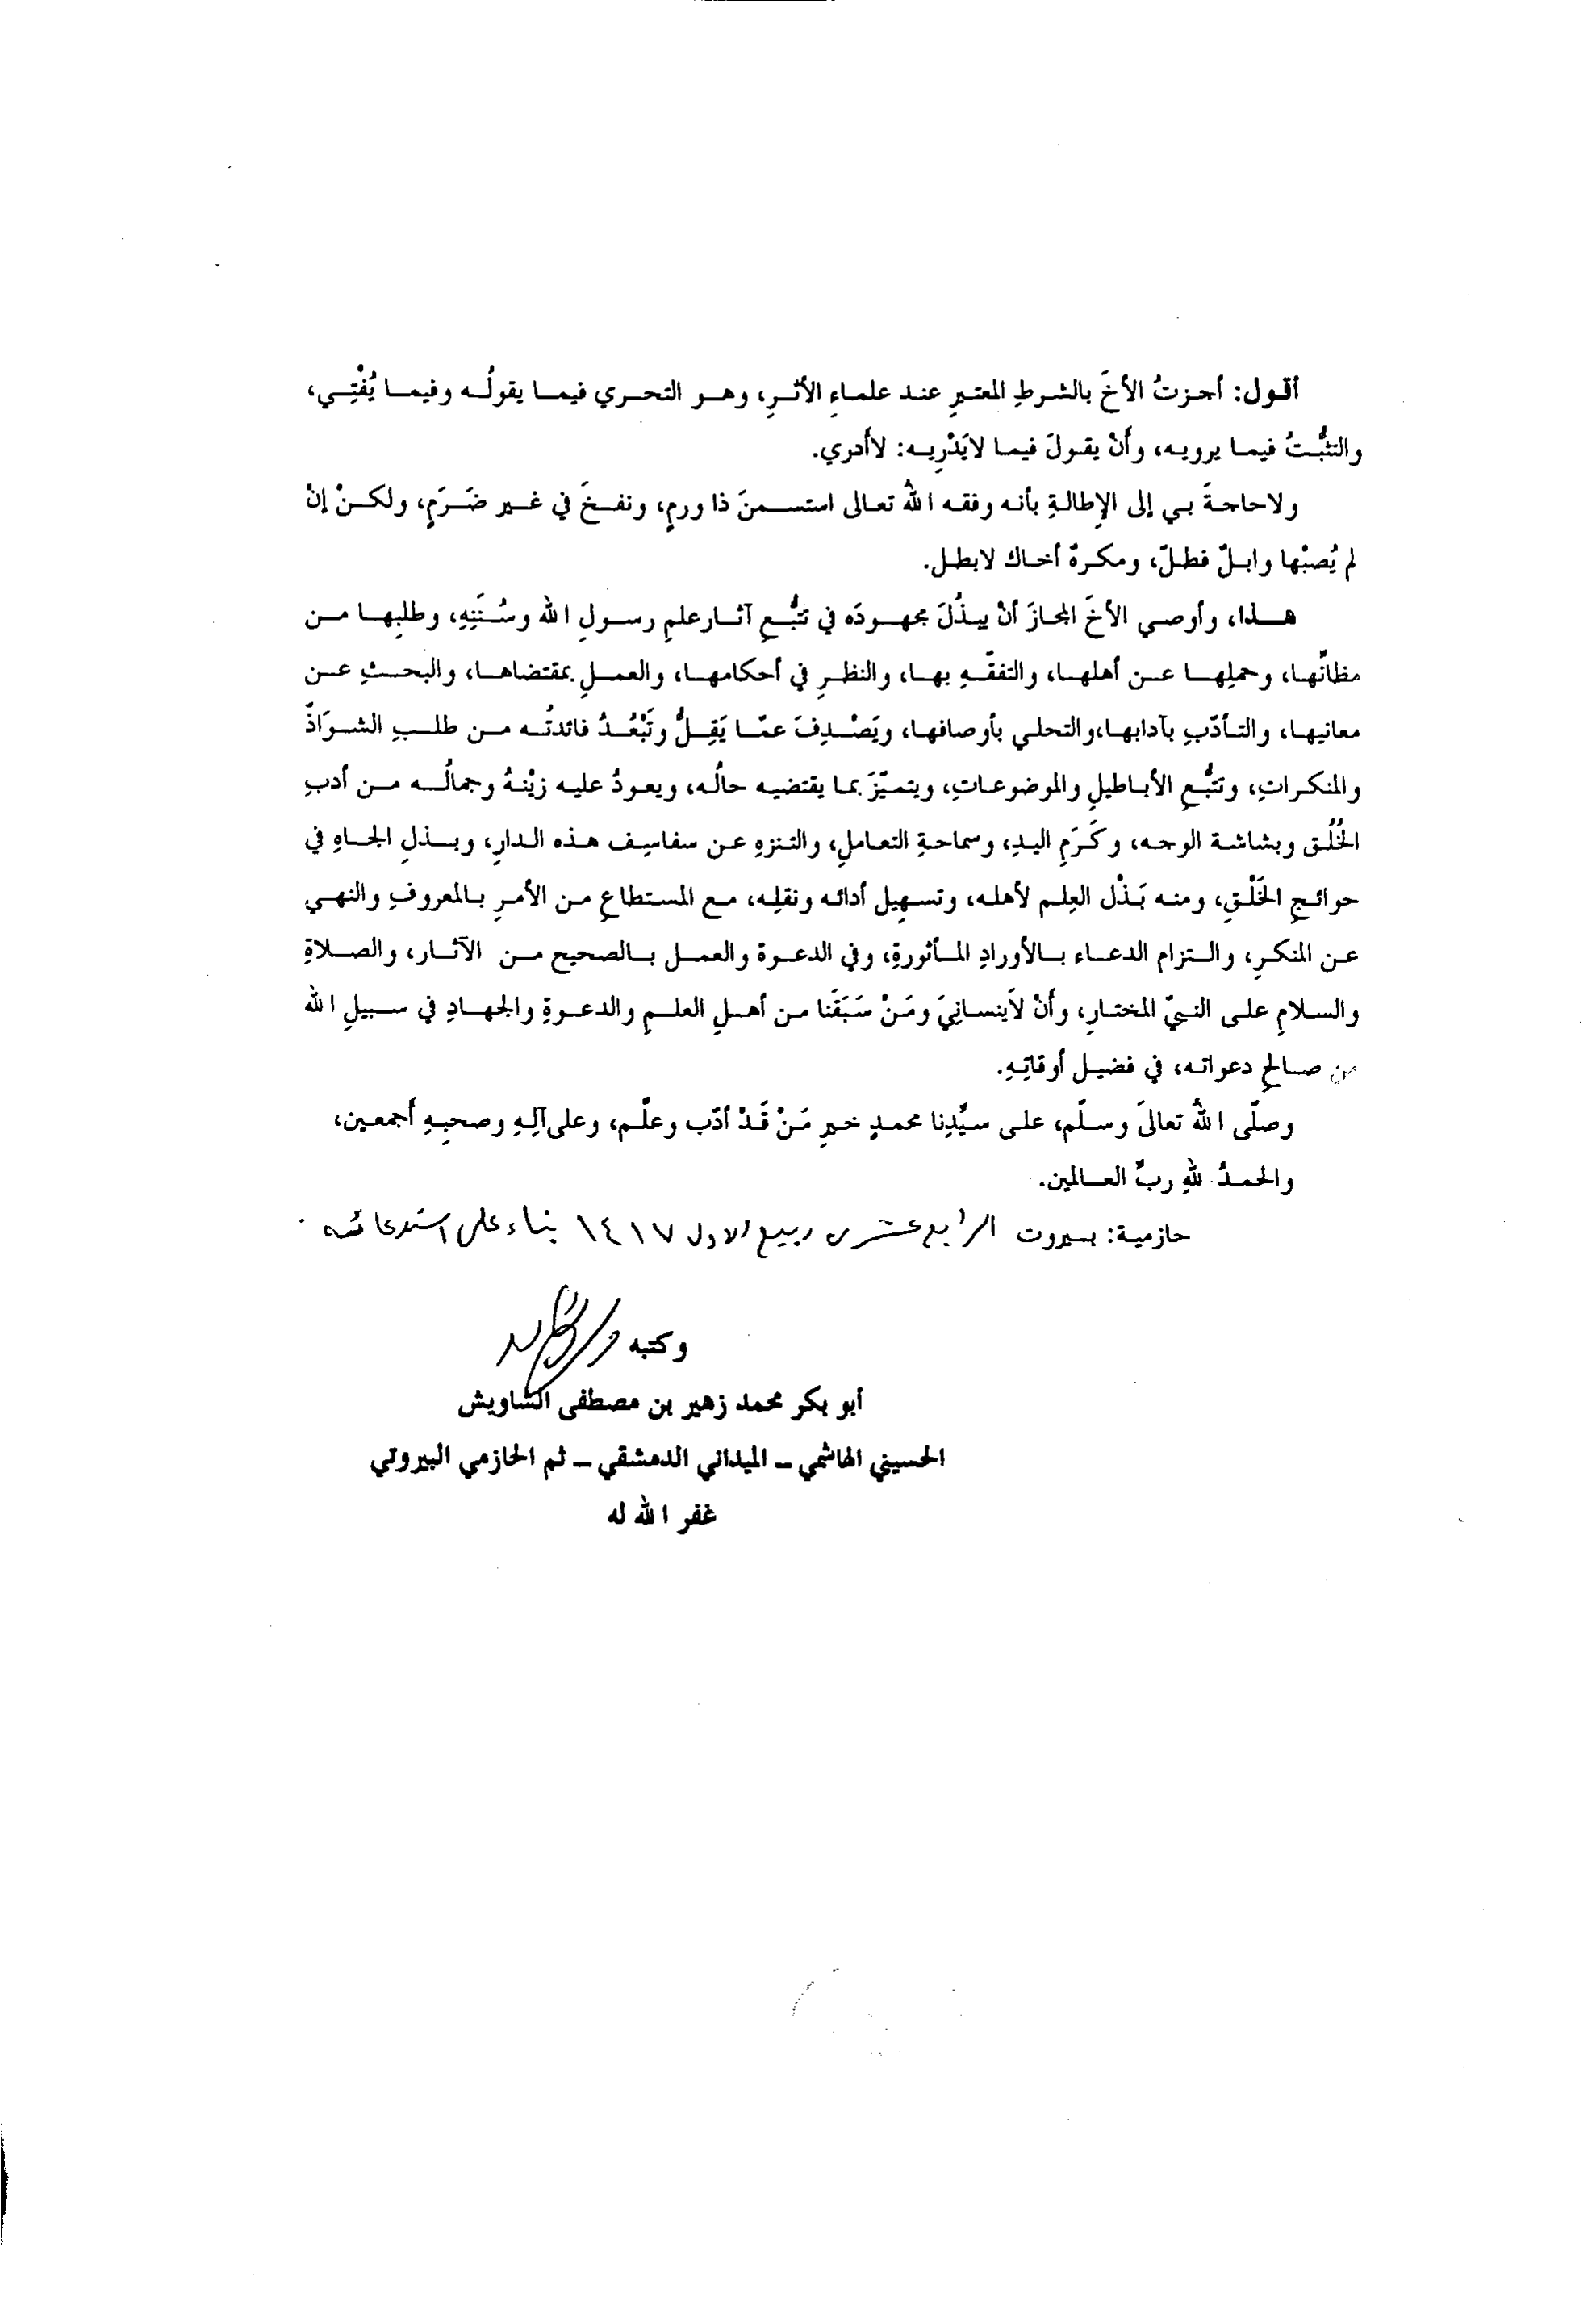 أقول: أجزتُ الأخَ بالشرطِ المعتبرِ عند علماءِ الأثرِ، وهو التحري فيما يقولُه وفيما يُفْتِي،
والتثبُّتُ فيما يرويه، وأَنْ يقولَ فيما لايَدْرِيه: لاأدري.
ولاحاجةَ بي إلى الإِطالةِ بأنه وفقه اللهُ تعالى استسمنَ ذا ورمٍ، ونفخَ في غير ضَرَمٍ، ولكنْ إنْ
لم يُصبْها وابلٌ فطلّ، ومكرهٌ أخاك لابطل.
هذا، وأوصي الأخَ المجازَ أنْ يبذُلَ مجهودَه في تتبُّعِ آثارعلمِ رسولِ الله وسُنَّتِهِ، وطلبِها من
مظانِّها، وحملِها عن أهلها، والتفقّهِ بها، والنظرِ في أحكامها، والعملِ بمقتضاها، والبحثِ عن
معانيها، والتأدّبِ بآدابها،والتحلي بأوصافها، ويَصْدِفَ عمّا يَقِلُّ وتَبْعُدُ فائدتُه من طلبِ الشوَاذّ
والمنكراتِ، وتتبُّعِ الأباطيلِ والموضوعاتِ، ويتميّزَ بما يقتضيه حالُه، ويعودُ عليه زيْنهُ وجمالُه من أدبِ
الخُلُق وبشاشة الوجه، وكَرَمِ اليدِ، وسماحةِ التعاملِ، والتنزهِ عن سفاسِف هذه الدارِ، وبذلِ الجاهِ في
حوائجِ الخَلْقِ، ومنه بَذْل العِلم لأهله، وتسهيل أدائه ونقلِه، مع المستطاعِ من الأمرِ بالمعروفِ والنهي
عن المنكرِ، والتزام الدعاء بالأورادِ المأثورةِ، وفي الدعوة والعمل بالصحيح من الآثار، والصلاةِ
والسلامِ على النبيّ المختارِ، وأَنْ لاَينسانِيَ ومَنْ سَبَقَنا من أهلِ العلمِ والدعوةِ والجهادِ في سبيلِ الله
من صالحِ دعواته، في فضيل أوقاتِهِ.
وصلّى اللهُ تعالىَ وسلّم، على سيِّدِنا محمدٍ خيرِ مَنْ قَدْ أدّب وعلّم، وعلى آلِهِ وصحبِهِ أجمعين،
والحمدُ للهِ ربِّ العالمين.
حازمية: بيروت الرابع عشر من ربيع الاول ١٤١٧ بناء على استدعائه.
وكتبه
أبو بكر محمد زهير بن مصطفى الشاويش
الحسيني الهاشمي – الميداني الدمشقي – ثم الحازمي البيروتي
غفر الله له